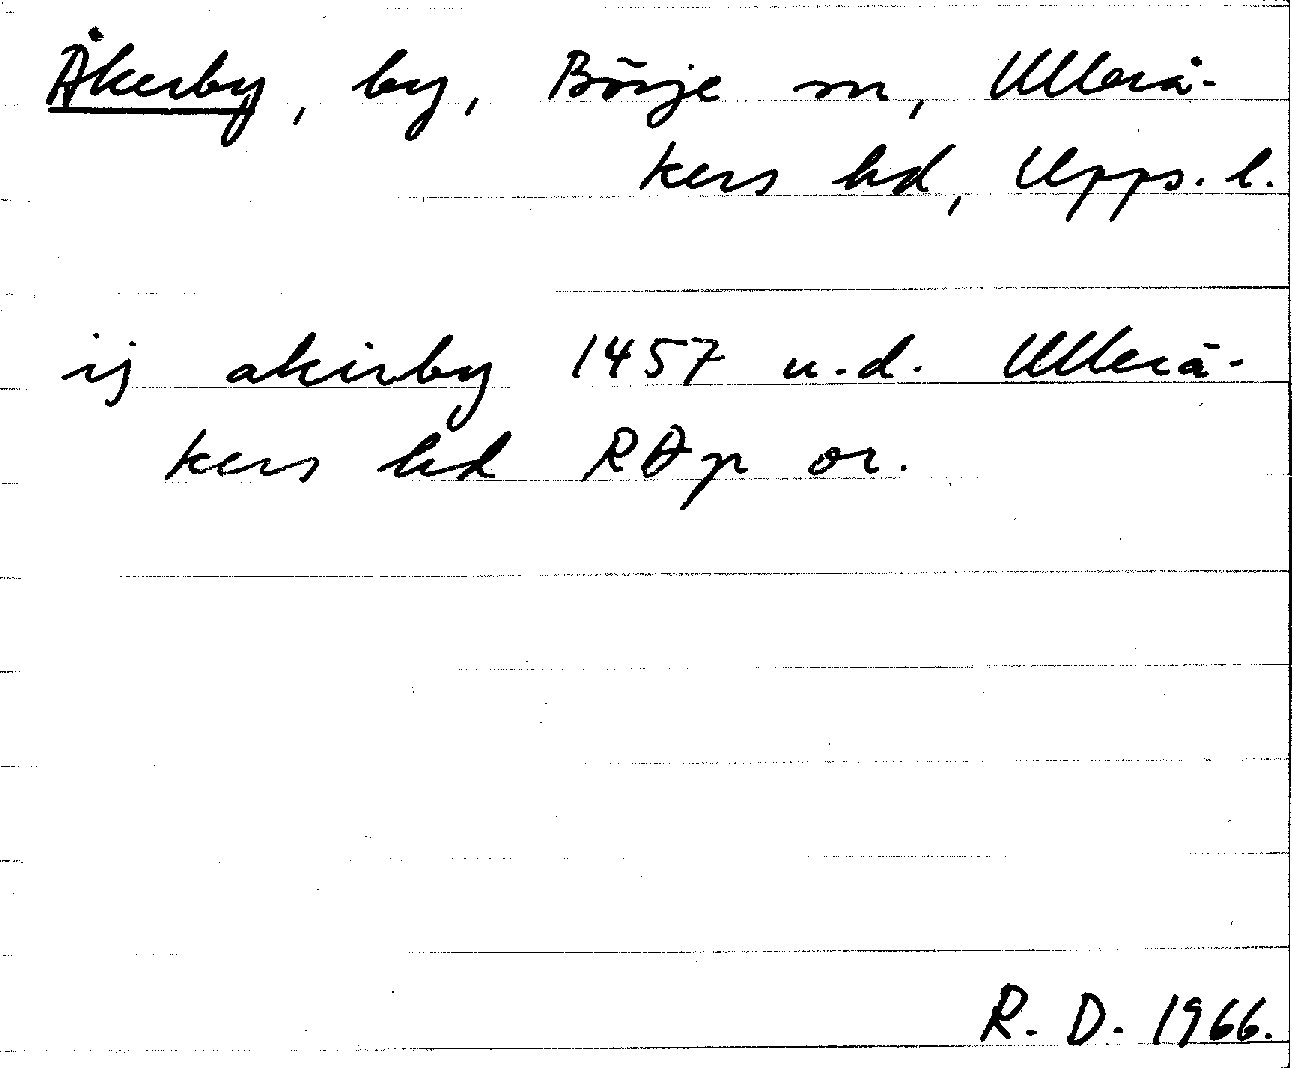 Åkerby, by, Börje sn, Ullerå-
kers hd, Upps. l.
ij akirby 1457 u.d. Ullerå-
kers hd RAp or.
R. D. 1966.